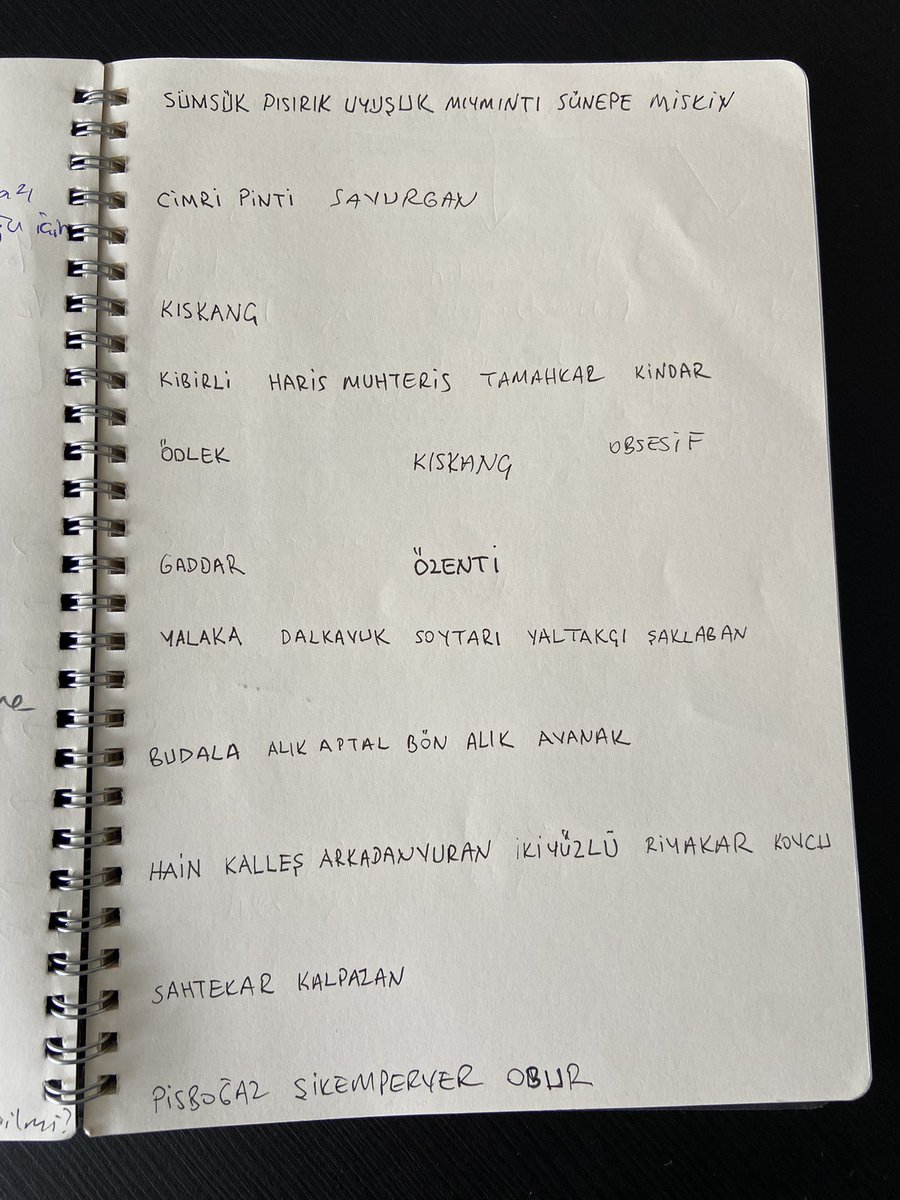 azı
ğu için
ne
bilmi?
SÜMSÜK PISIRIK UYUŞUK MIYMINTI SÜNEPE MİSKİN
CİMRİ PİNTİ SAVURGAN
KISKANÇ
KİBİRLİ HARİS MUHTERİS TAMAHKAR KİNDAR
ÖDLEK KISKANÇ OBSESİF
GADDAR ÖZENTİ
YALAKA DALKAVUK SOYTARI YALTAKÇI ŞAKLABAN
BUDALA ALIK APTAL BÖN ALIK AVANAK
HAİN KALLEŞ ARKADANVURAN İKİYÜZLÜ RİYAKAR KOVCU
SAHTEKAR KALPAZAN
PİSBOĞAZ ŞİKEMPERVER OBUR